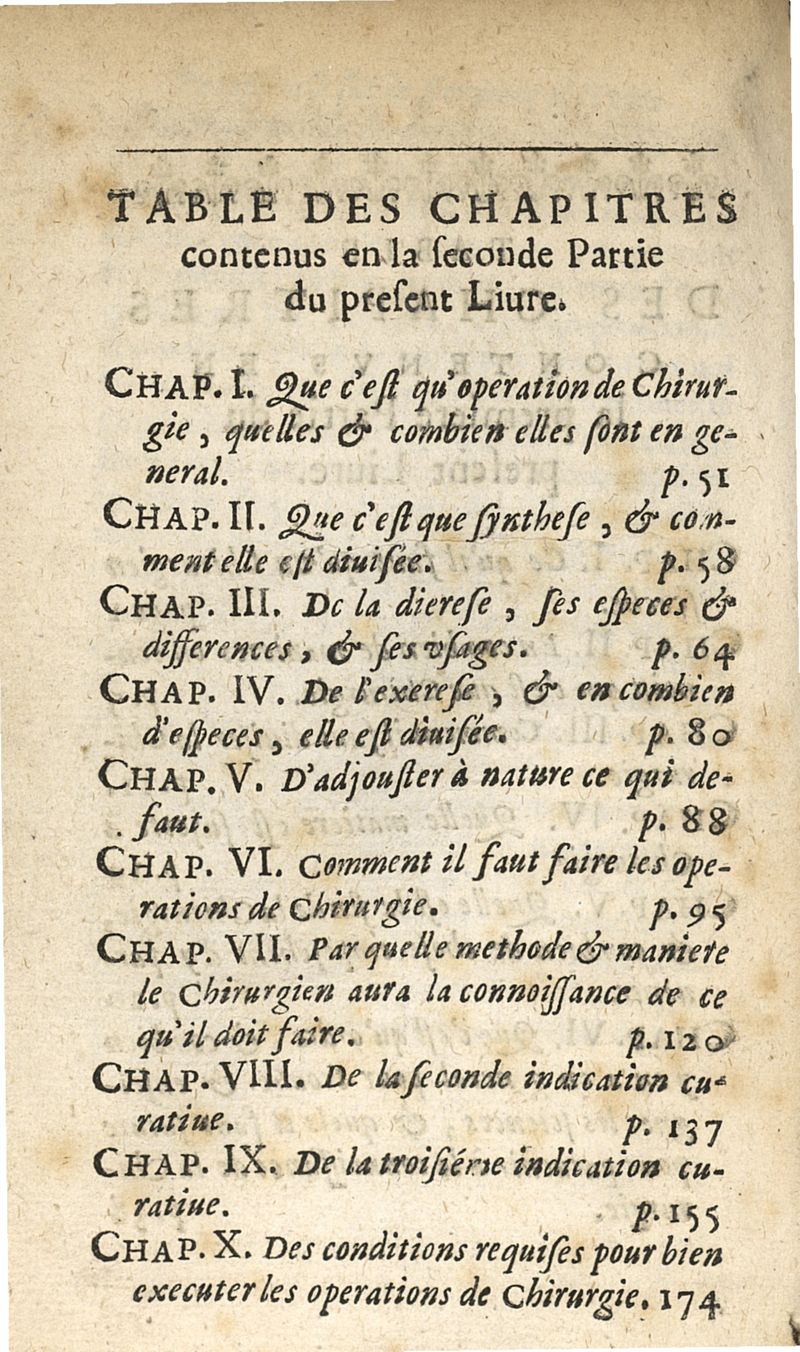 TABLE DES CHAPITRES
contenus en la ſeconde Partie
du preſent Liure.
CHAP. I. Que c'eſt qu'operation de Chirur-
gie, quelles & combien elles ſont en ge-
neral. p. 51
CHAP. II. Que c'eſt que ſyntheſe, & com-
ment elle eſt diuiſée. p. 58
CHAP. III. De la diereſe, ſes eſpeces &
differences, & ſes vſages. p. 64
CHAP. IV. De l'exereſe, & en combien
d'eſpeces, elle eſt diuiſée. p. 80
CHAP. V. D'adjouſter à nature ce qui de-
faut. p. 88
CHAP. VI. Comment il faut faire les ope-
rations de Chirurgie. p. 95
CHAP. VII. Par quelle methode & maniere
le Chirurgien aura la connoiſſance de ce
qu'il doit faire. p. 120
CHAP. VIII. De la ſeconde indication cu-
ratiue. p. 137
CHAP. IX. De la troiſiéme indication cu-
ratiue. p. 155
CHAP. X. Des conditions requiſes pour bien
executer les operations de Chirurgie. 174